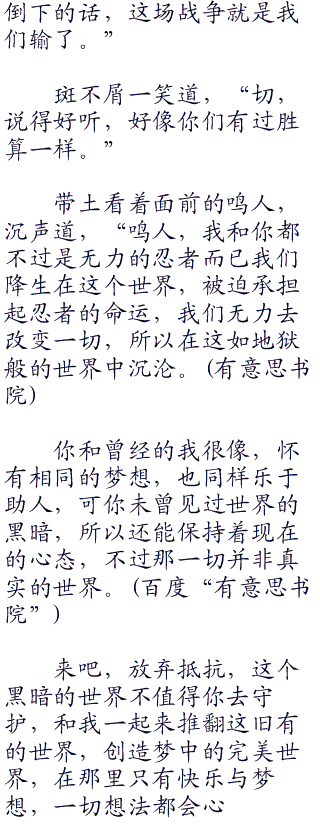 倒下的话，这场战争就是我
们输了。”
斑不屑一笑道，“切，
说得好听，好像你们有过胜
算一样。”
带土看着面前的鸣人，
沉声道，“鸣人，我和你都
不过是无力的忍者而已我们
降生在这个世界，被迫承担
起忍者的命运，我们无力去
改变一切，所以在这如地狱
般的世界中沉沦。(有意思书
院)
你和曾经的我很像，怀
有相同的梦想，也同样乐于
助人，可你未曾见过世界的
黑暗，所以还能保持着现在
的心态，不过那一切并非真
实的世界。(百度“有意思书
院”)
来吧，放弃抵抗，这个
黑暗的世界不值得你去守
护，和我一起来推翻这旧有
的世界，创造梦中的完美世
界，在那里只有快乐与梦
想，一切想法都会心